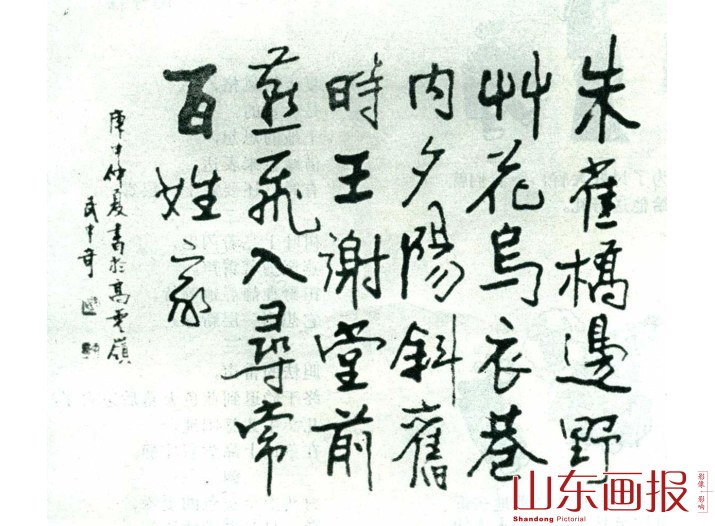 朱雀橋邊野
艸花烏衣巷
内夕陽斜舊
時王謝堂前
燕飛入尋常
百姓家
庚申仲夏書於高雲嶺
武中奇
山东画报
Shandong Pictorial
影像
影响